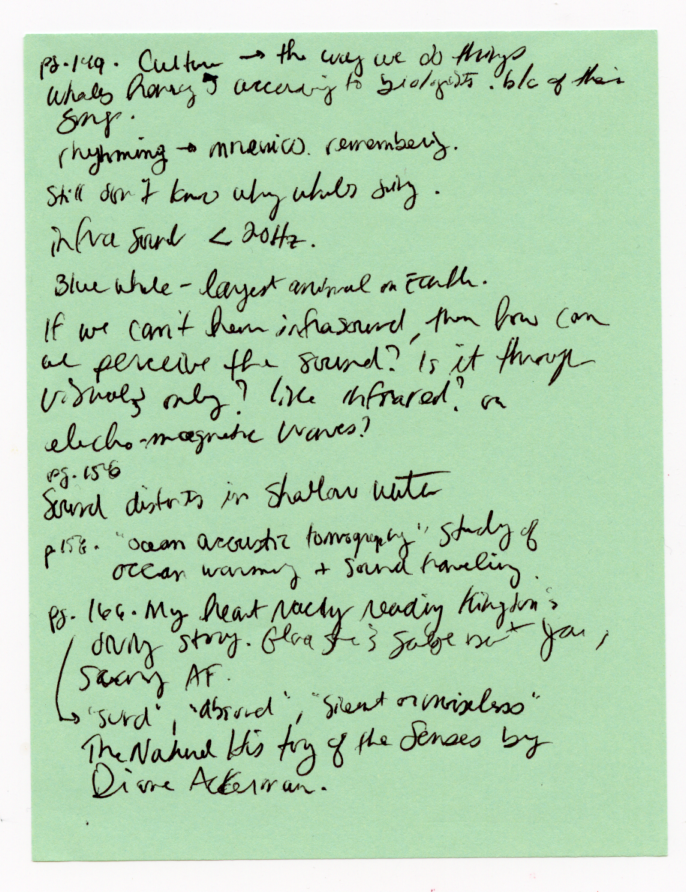 pg. 149. Culture → the way we do things
Whales have according to biologists. b/c of their
song.
rhyhming → mnemico. remembering.
Still don't know why whales sing.
infra sound < 20Hz.
Blue whale - largest animal on Earth.
If we can't hear infrasound, then how can
we perceive the sound? Is it through
visuals only? like infrared? or
electro-magnetic waves?
pg. 156
Sound distorts in shallow water
p 158. "ocean acoustic tomography" study of
ocean warming + sound traveling.
pg. 166. My heart racing reading Kingdon's
diving story. she's safe but
scary AF.
→ "surd", "absurd", "silent or noiseless"
The Natural History of the Senses by
Diane Ackerman.